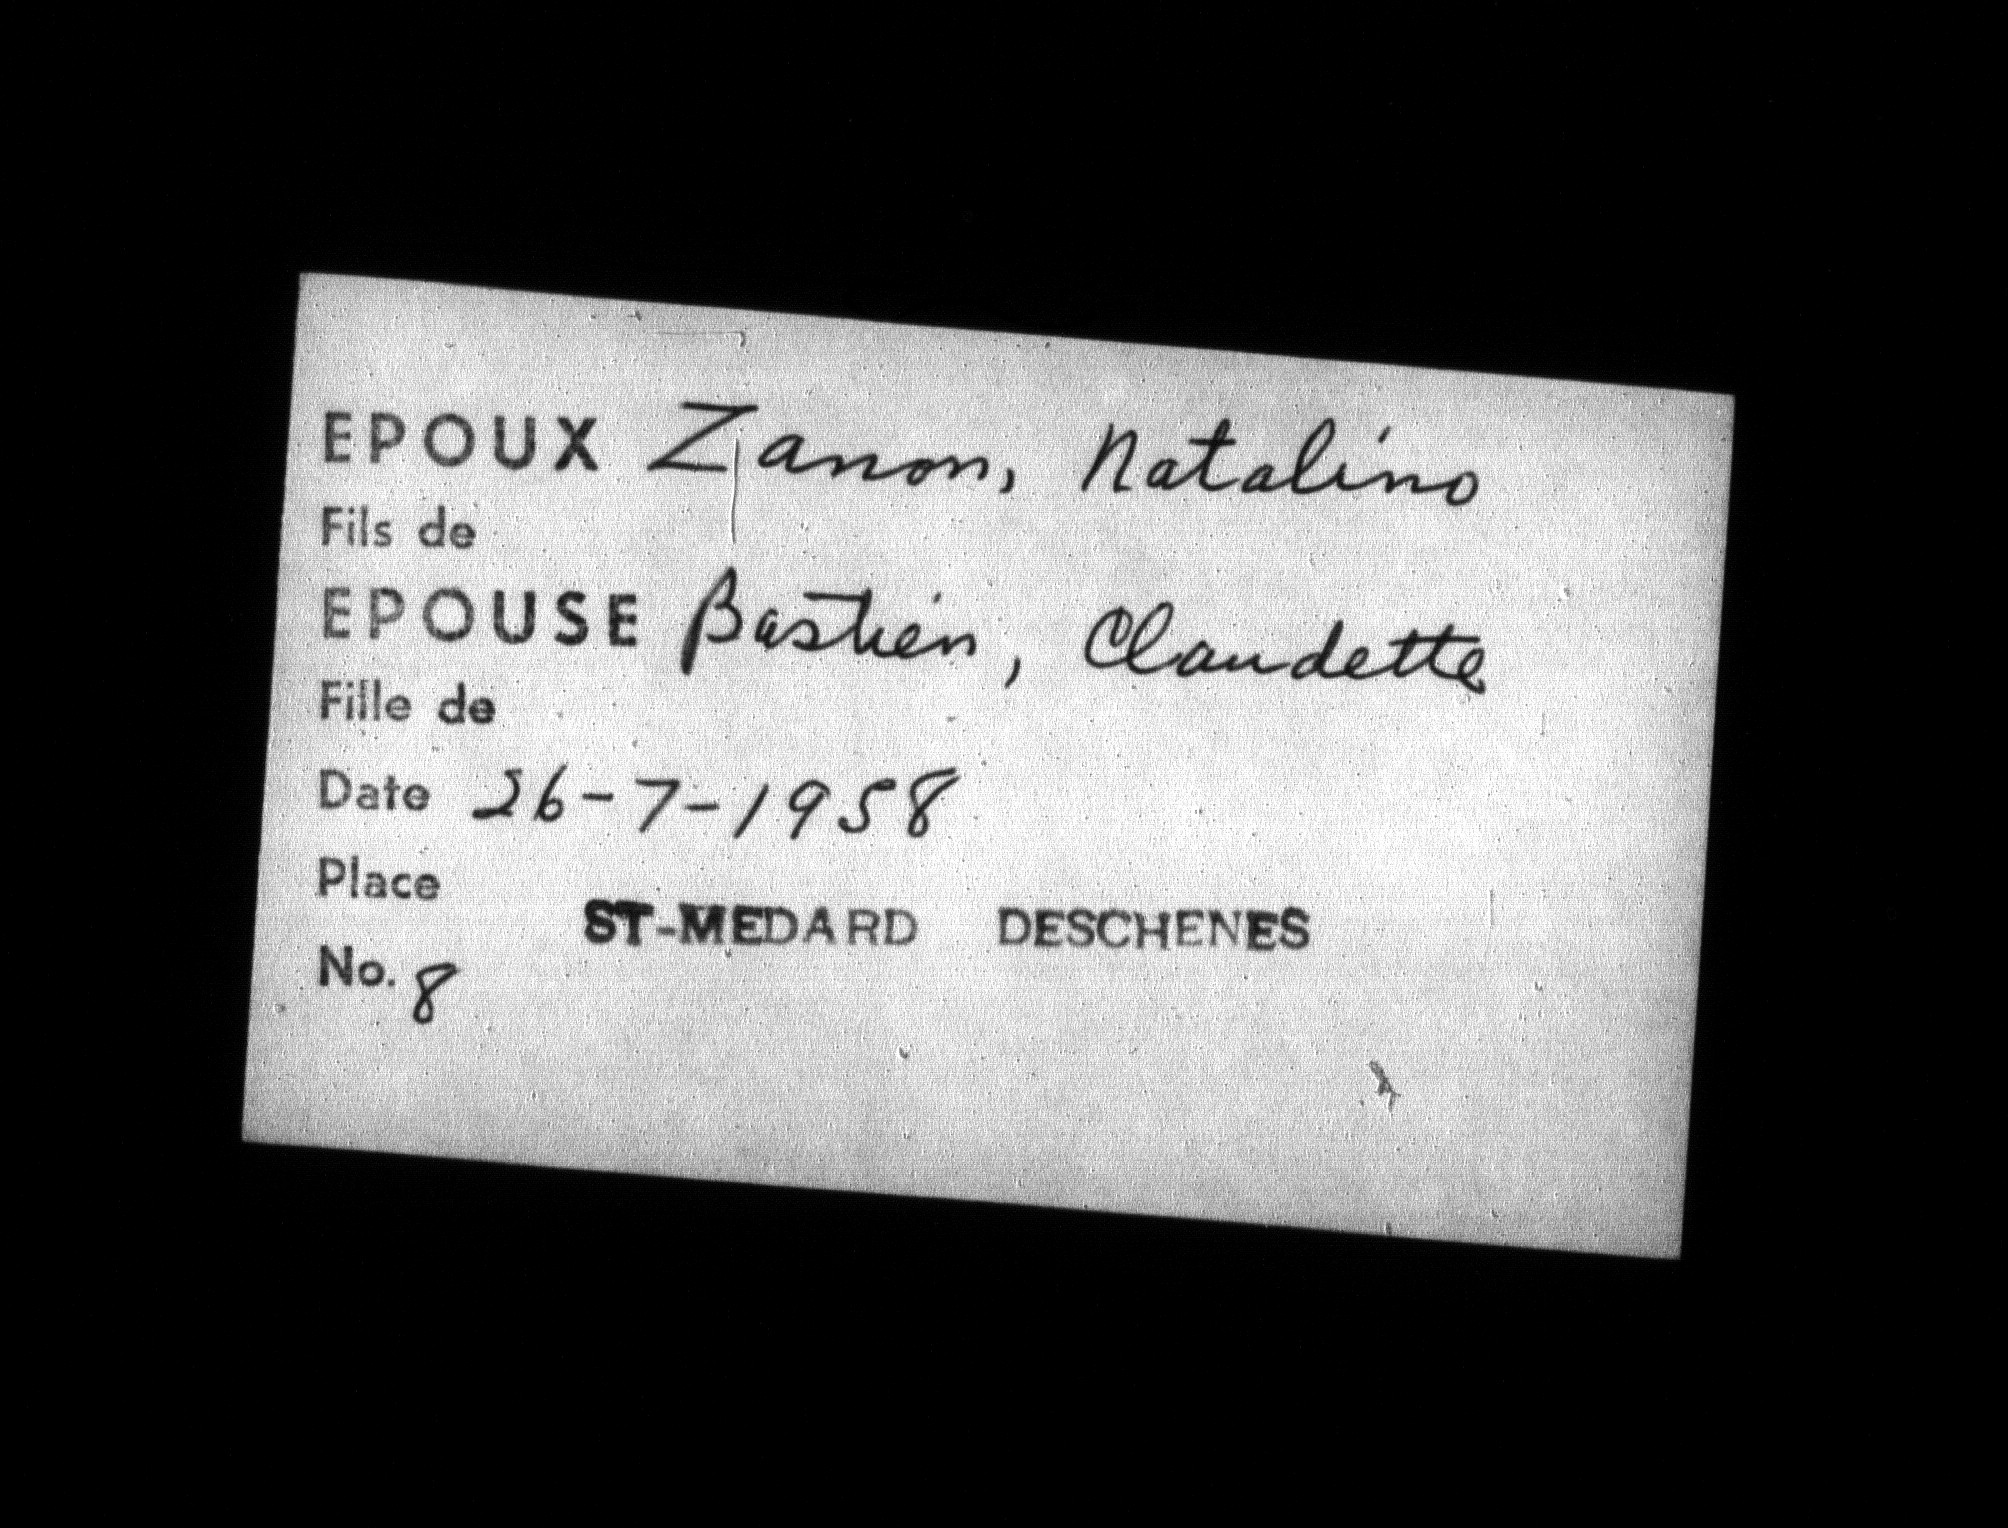 EPOUX Zanon, Natalino
Fils de
EPOUSE Bastien, Claudette
Fille de
Date 26-7-1958
Place
ST-MEDARD DESCHENES
No. 8